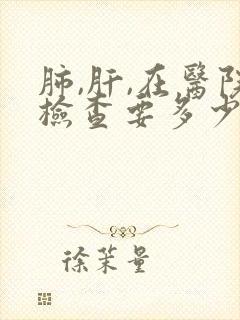 肺,肝,在醫院
檢查要多少
徐茉量